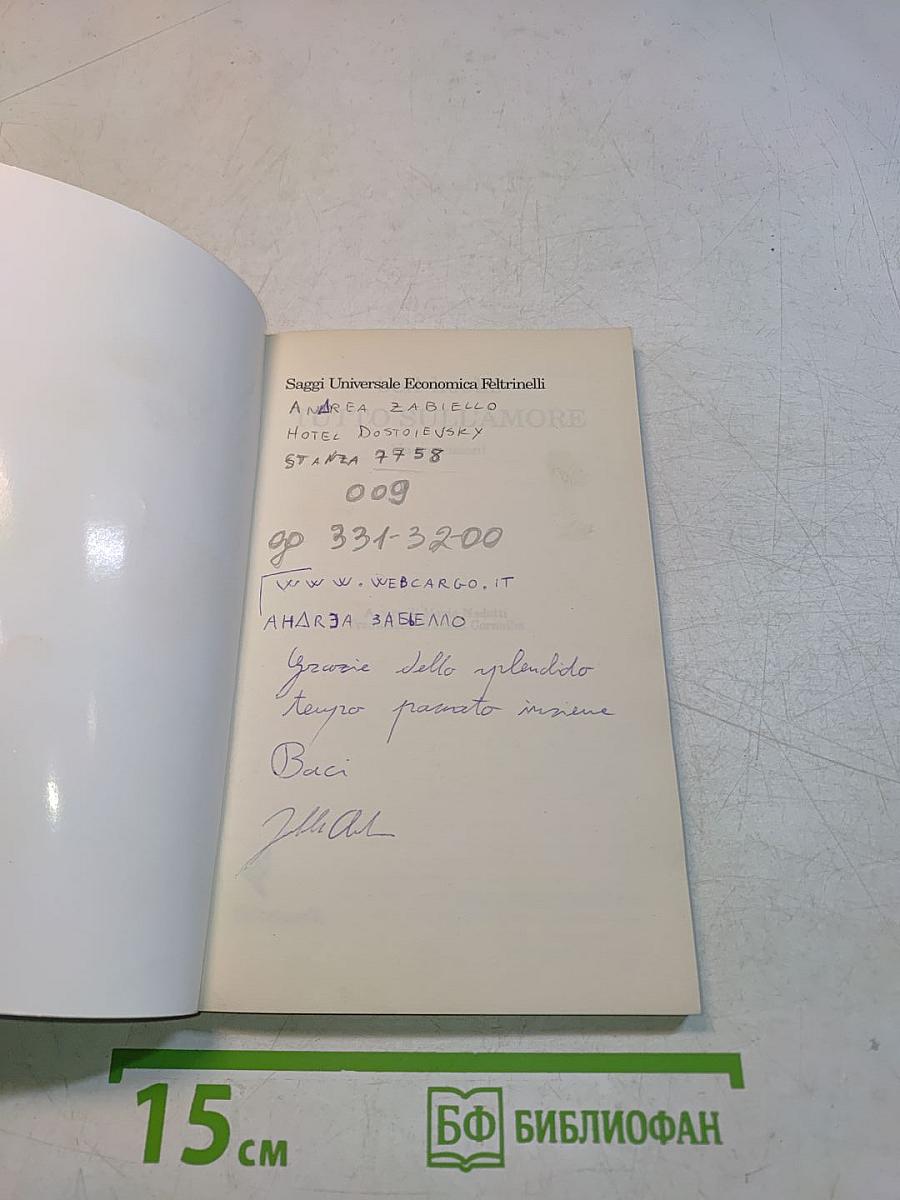 Saggi Universale Economica Feltrinelli
ANDREA ZABIELLO
TUTTO SULL'AMORE
HOTEL DOSTOIEVSKY
STANZA 7758
009
др 331-32-00
WWW.WEBCARGO.IT
АНДRЭА ЗАБЬЕЛЛО
Grazie dello splendido
tempo passato insieme
Baci
15 см
БФ БИБЛИОФАН